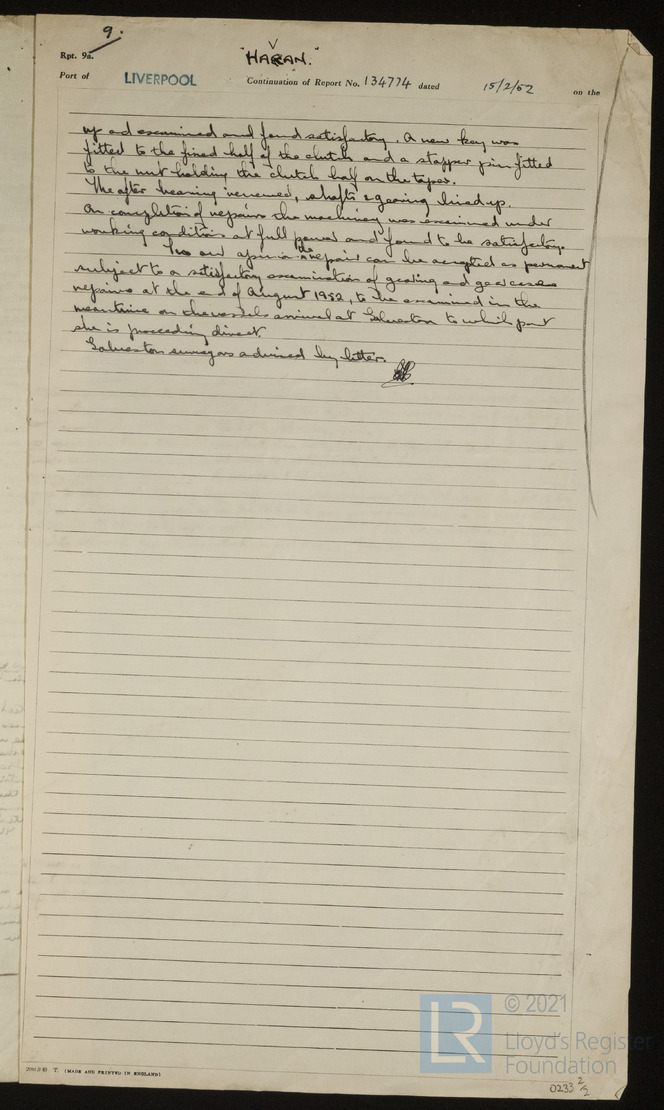 9.
Rpt. 9a.
"HARAN."
Port of LIVERPOOL Continuation of Report No. 134774 dated 15/2/52 on the
up and examined and found satisfactory. A new key was
fitted to the fixed half of the clutch and a stopper pin fitted
to the nut holding the clutch half on the taper.
The after bearing renewed, shafts & gearing lined up.
On completion of repairs the machinery was examined under
working conditions at full power and found to be satisfactory.
In our opinion the repair can be accepted as permanent
subject to a satisfactory examination of gearing and gearcase
repairs at the end of August 1952, to be examined in the
meantime on the vessels arrival at Galveston to which port
she is proceeding direct.
Galveston surveyors advised by letter.
T. (MADE AND PRINTED IN ENGLAND)
© 2021
LR
Lloyd's Register
Foundation
0233 2/2